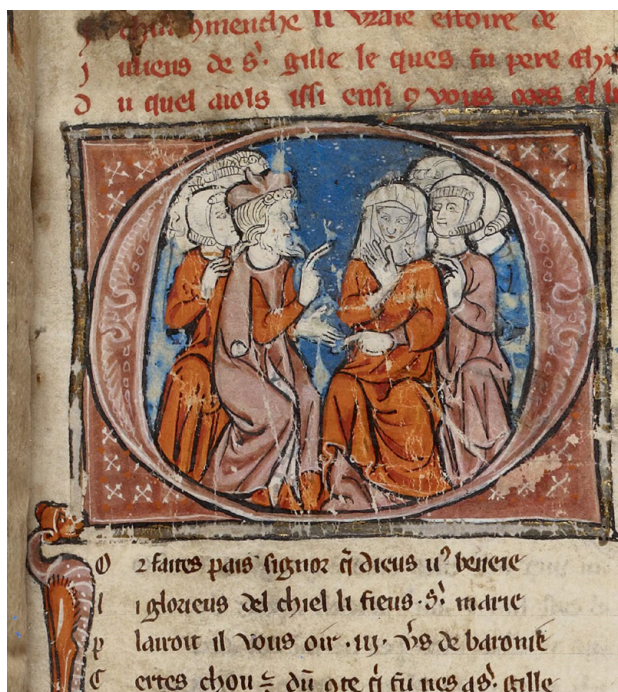 chi 9menche li vraie estoire de
J uliens de s̄. gille le ques fu pere
D u quel aiols issi ensi 9 vous ores el
O r faites pais signor q̄ dieus v9 beneie
l i glorieus del chiel li fieus . s̄. marie
P lairoit il vous oir .iij. v̄s de baronie
C ertes chou ē dū 9te q̄ fu nes a s̄. Gille